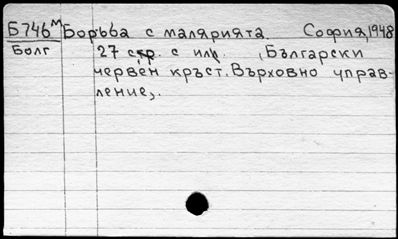 Б746м Борьба с малярията. София, 1948
Болг 27 стр. с илл. (Български
червен кръст. Върховно управ-
ление).